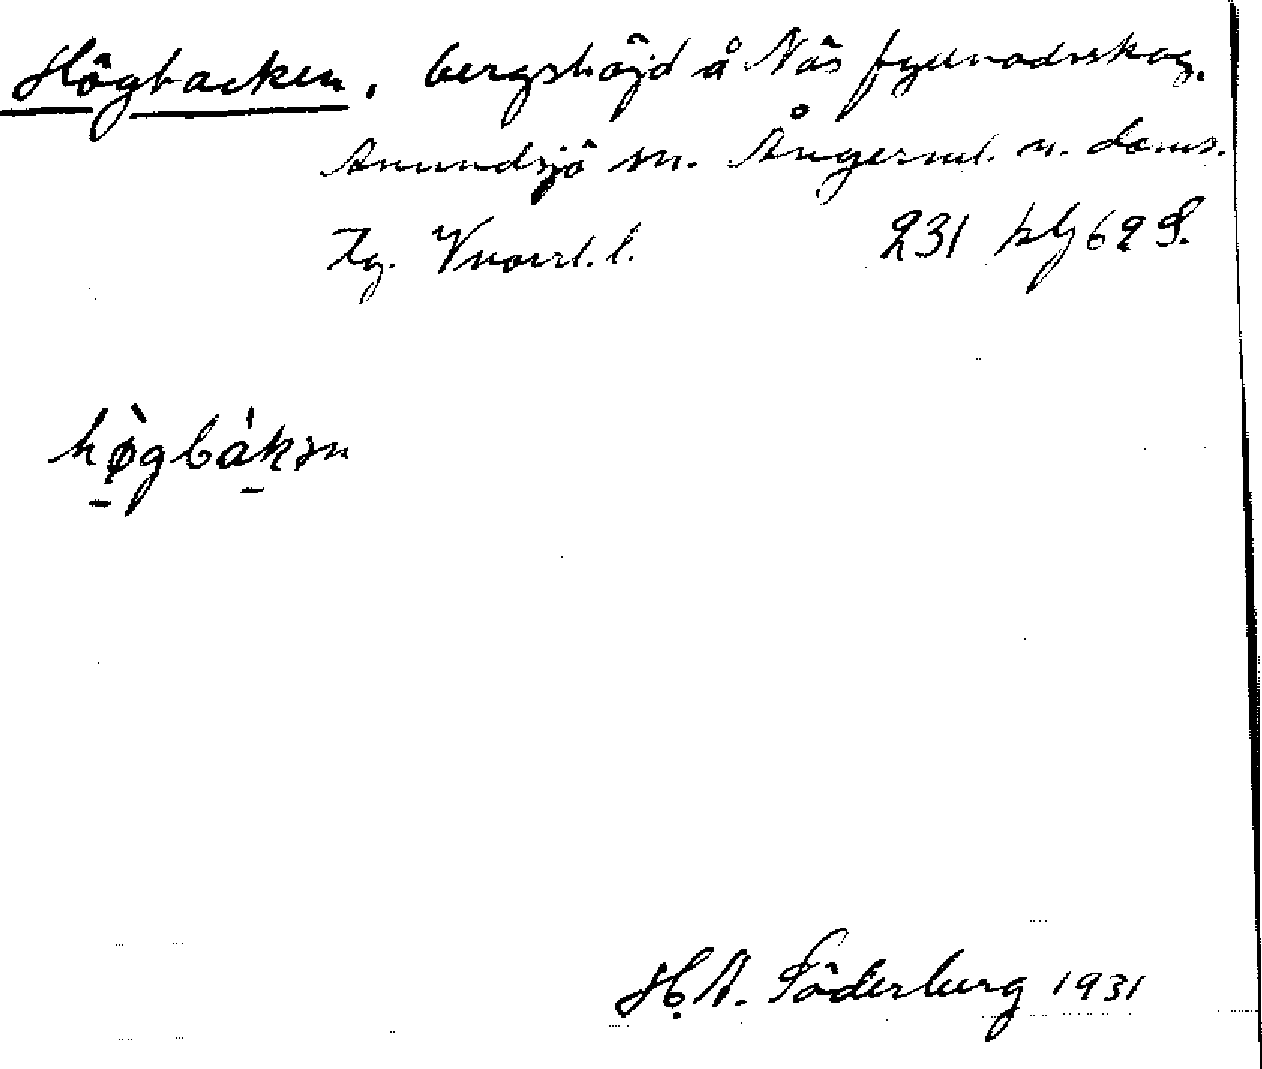 Högbacken, bergshöjd å Näs fyllnadsskog.
Anundsjö sn. Ångerml. n. doms.
Tg. Vnorrl. l. 231 blj 62 S.
hø̀gbákən
H. A. Söderberg 1931